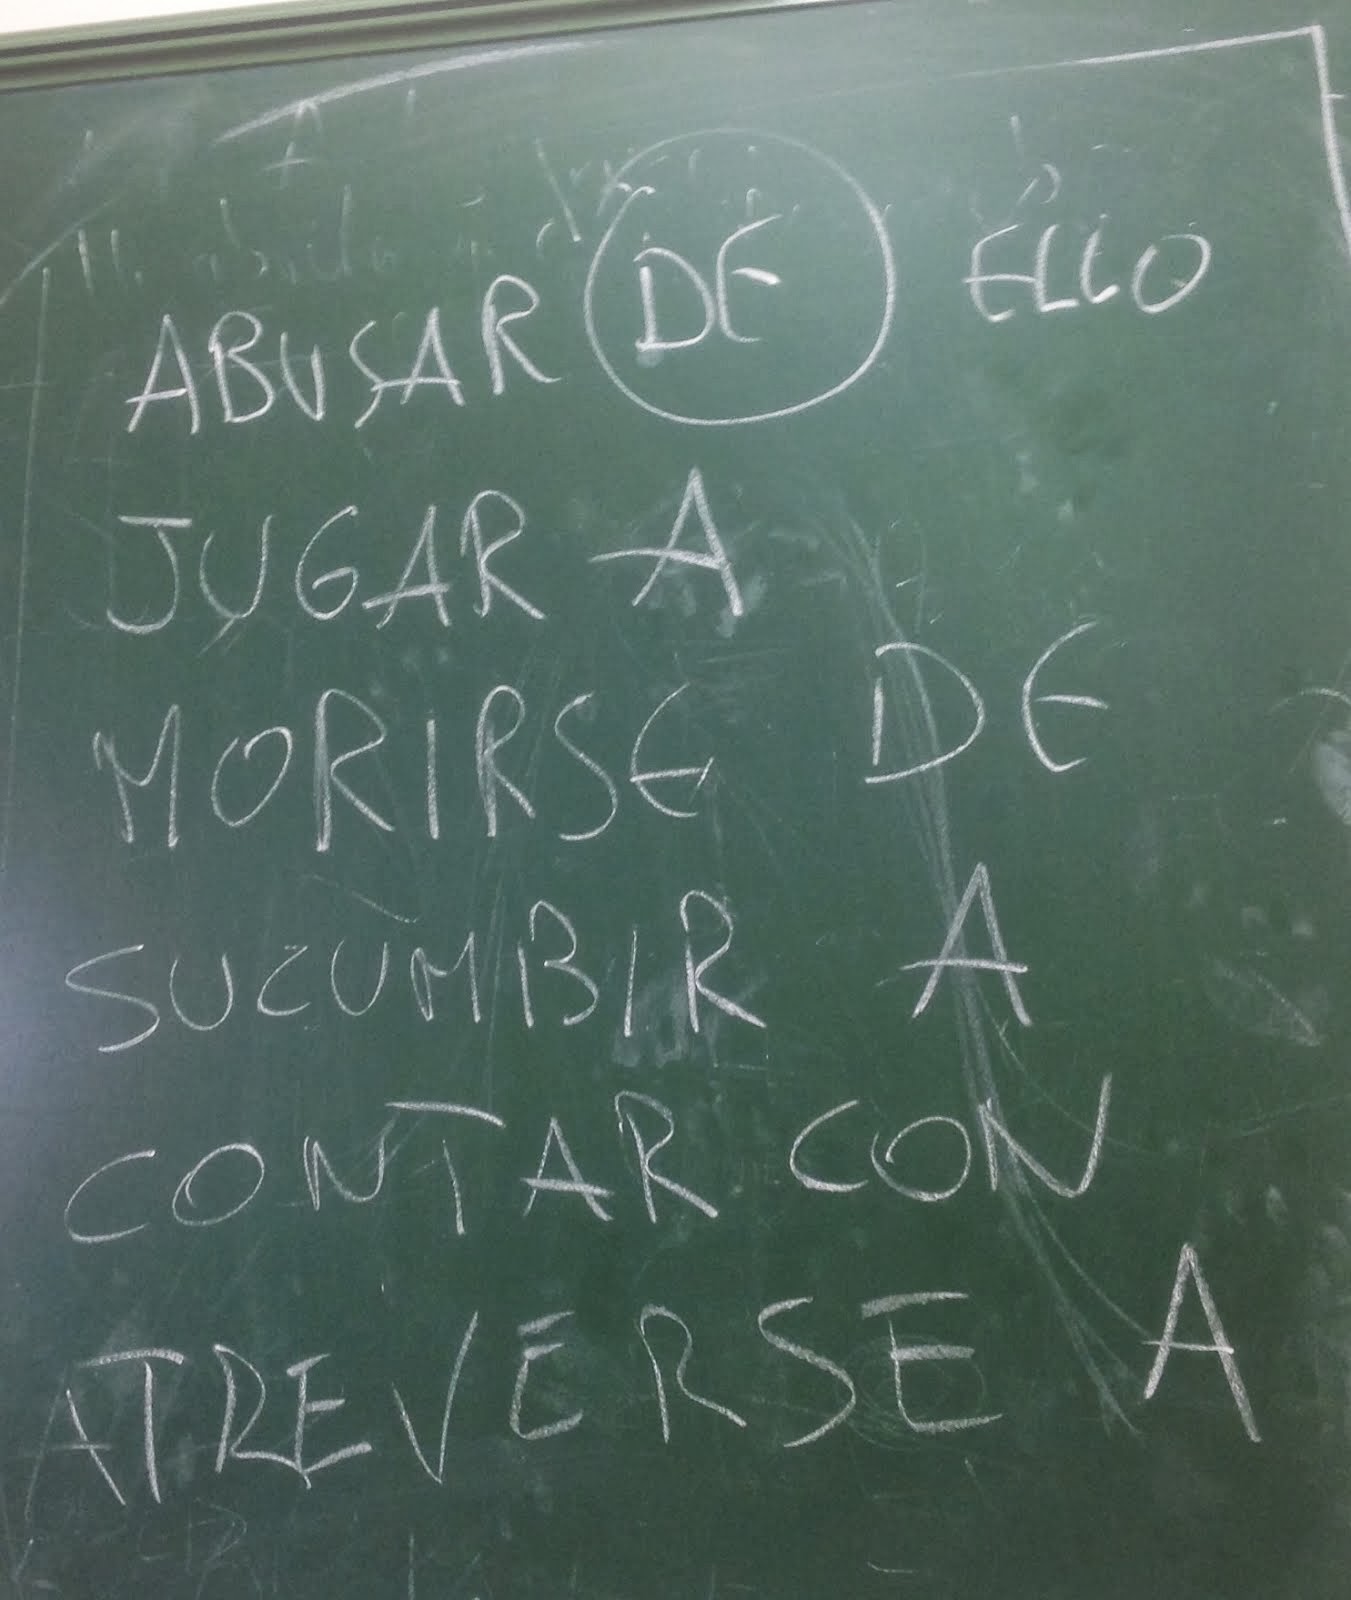 ABUSAR DE ELLO
JUGAR A
MORIRSE DE
SUCUMBIR A
CONTAR CON
ATREVERSE A